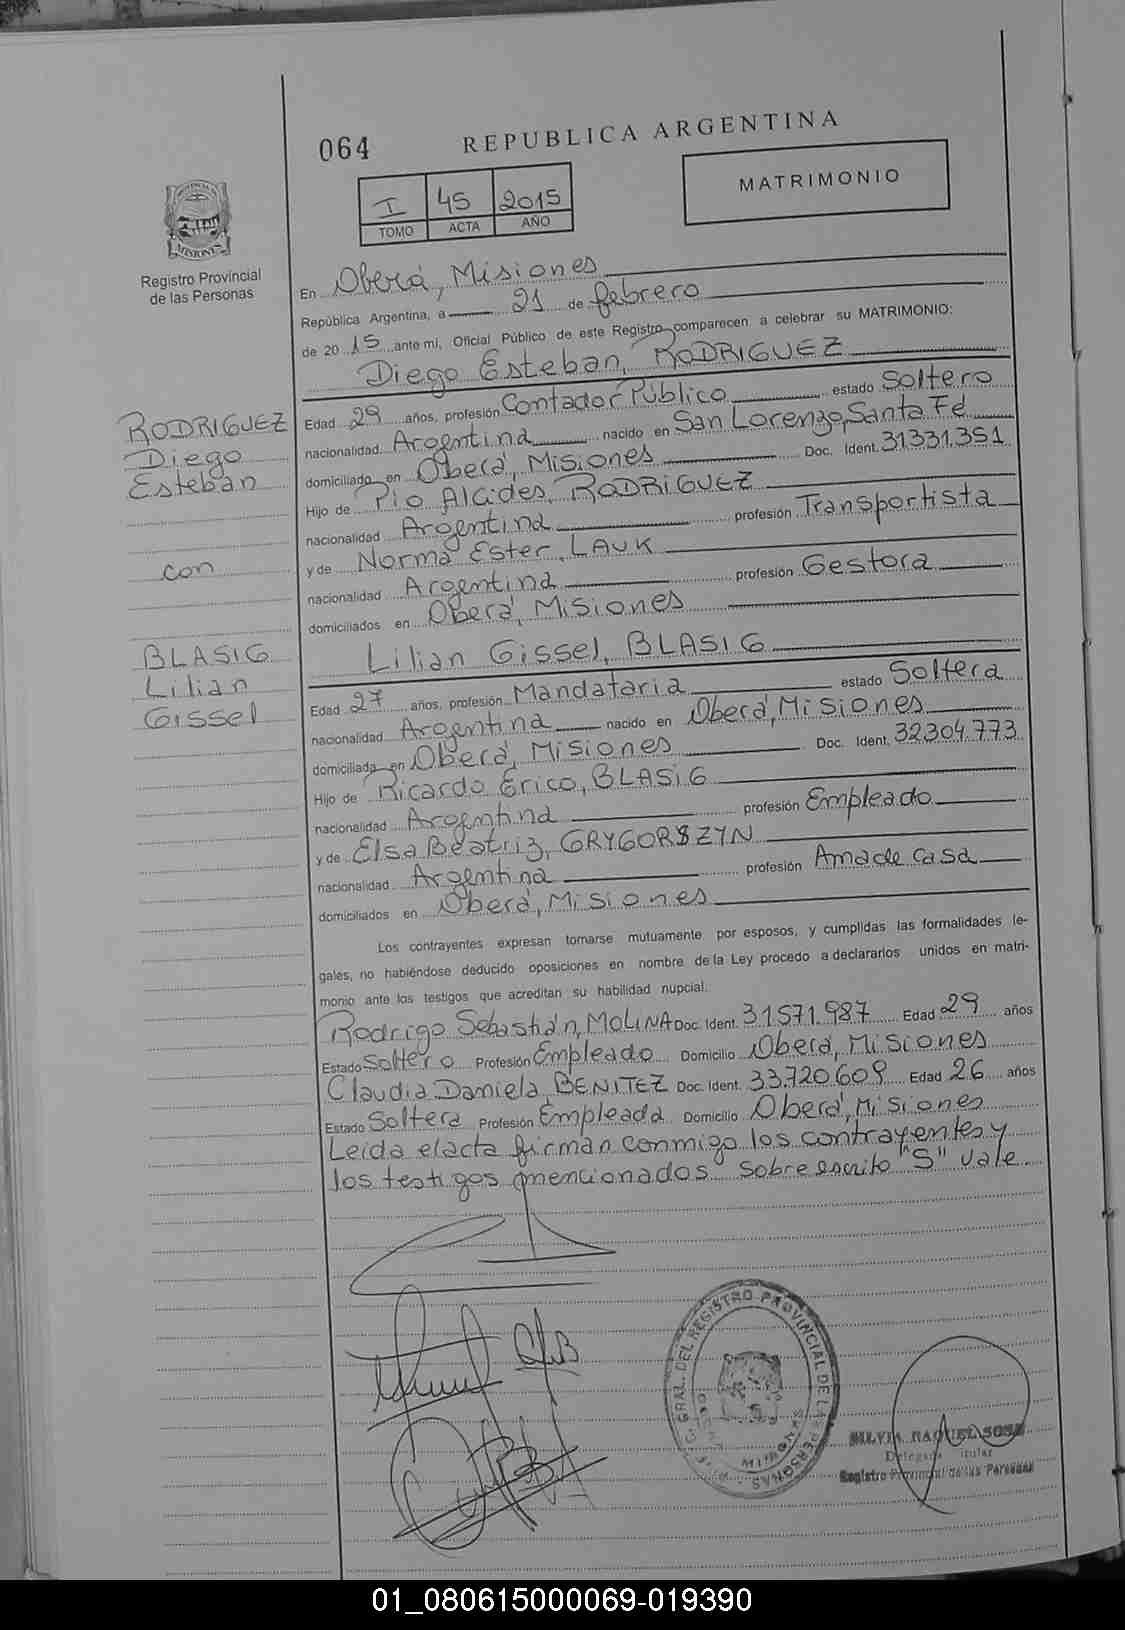 064
REPUBLICA ARGENTINA
I 45 2015
TOMO ACTA AÑO
MATRIMONIO
Registro Provincial
de las Personas
En Oberá, Misiones
República Argentina, a 21 de febrero
de 2015 ante mi, Oficial Público de este Registro comparecen a celebrar su MATRIMONIO:
Diego Esteban, RODRIGUEZ
RODRIGUEZ
Diego
Esteban
con
BLASIG
Lilian
Gissel
Edad 29 años, profesión Contador Público estado Soltero
nacionalidad Argentina nacido en San Lorenzo, Santa Fé
domiciliado en Oberá, Misiones Doc. Ident. 31331.351
Hijo de Pio Alcides, RODRIGUEZ
nacionalidad Argentina profesión Transportista
y de Norma Ester, LAUK
nacionalidad Argentina profesión Gestora
domiciliados en Oberá, Misiones
Lilian Gissel, BLASIG
Edad 27 años, profesión Mandataria estado Soltera
nacionalidad Argentina nacido en Oberá, Misiones
domiciliada en Oberá, Misiones Doc. Ident. 32304.773
Hijo de Ricardo Erico, BLASIG
nacionalidad Argentina profesión Empleado
y de Elsa Beatriz, GRYGORSZYN
nacionalidad Argentina profesión Ama de casa
domiciliados en Oberá, Misiones
Los contrayentes expresan tomarse mutuamente por esposos, y cumplidas las formalidades le-
gales, no habiéndose deducido oposiciones en nombre de la Ley procedo a declararlos unidos en matri-
monio ante los testigos que acreditan su habilidad nupcial.
Rodrigo Sebastián, MOLINA Doc. Ident. 31571.987 Edad 29 años
Estado Soltero Profesión Empleado Domicilio Oberá, Misiones
Claudia Daniela, BENITEZ Doc. Ident. 33.720.609 Edad 26 años
Estado Soltera Profesión Empleada Domicilio Oberá, Misiones
Leída el acta firman conmigo los contrayentes y
los testigos mencionados sobre escrito "S" vale
GRAL. DEL REGISTRO PROVINCIAL DE LAS PERSONAS
MISIONES
SILVIA RAQUEL SOSA
Delegada Titular
Registro Provincial de las Personas
01_080615000069-019390